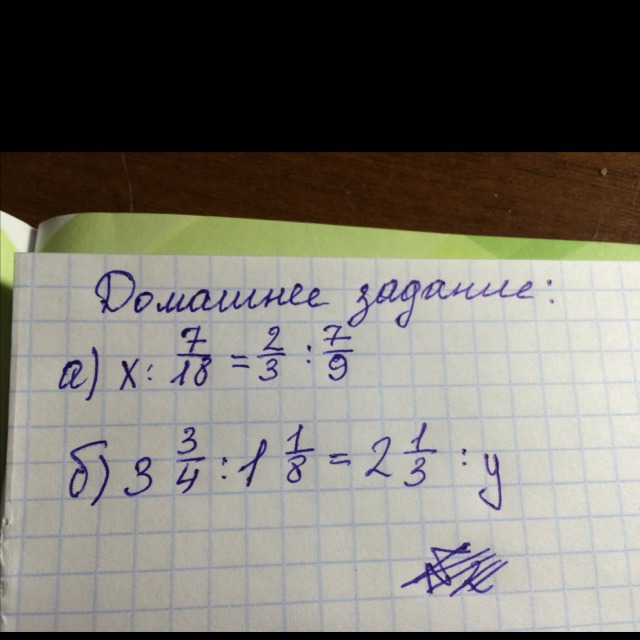 Домашнее задание:
а) x : 7/18 = 2/3 : 7/9
б) 3 3/4 : 1 1/8 = 2 1/3 : y